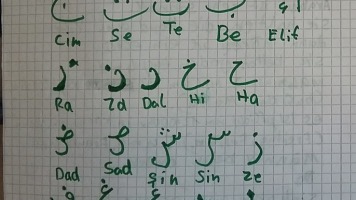 Cim Se Te Be Elif
ر ذ د خ ح
Ra Zd Dal Hi Ha
ض ص ش س ز
Dad Sad Şin Sin Ze